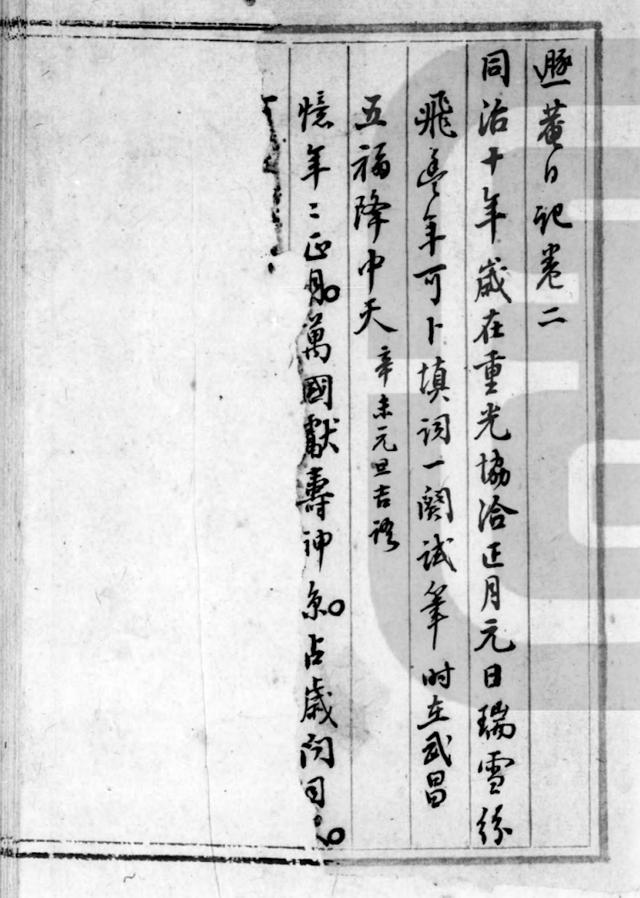 遯菴日記卷二
同治十年歲在重光協洽正月元日瑞雪紛
飛豐年可卜填詞一闋試筆時在武昌
五福降中天 辛未元旦吉語
憶年二正月。萬國獻壽神京。占歲問同。